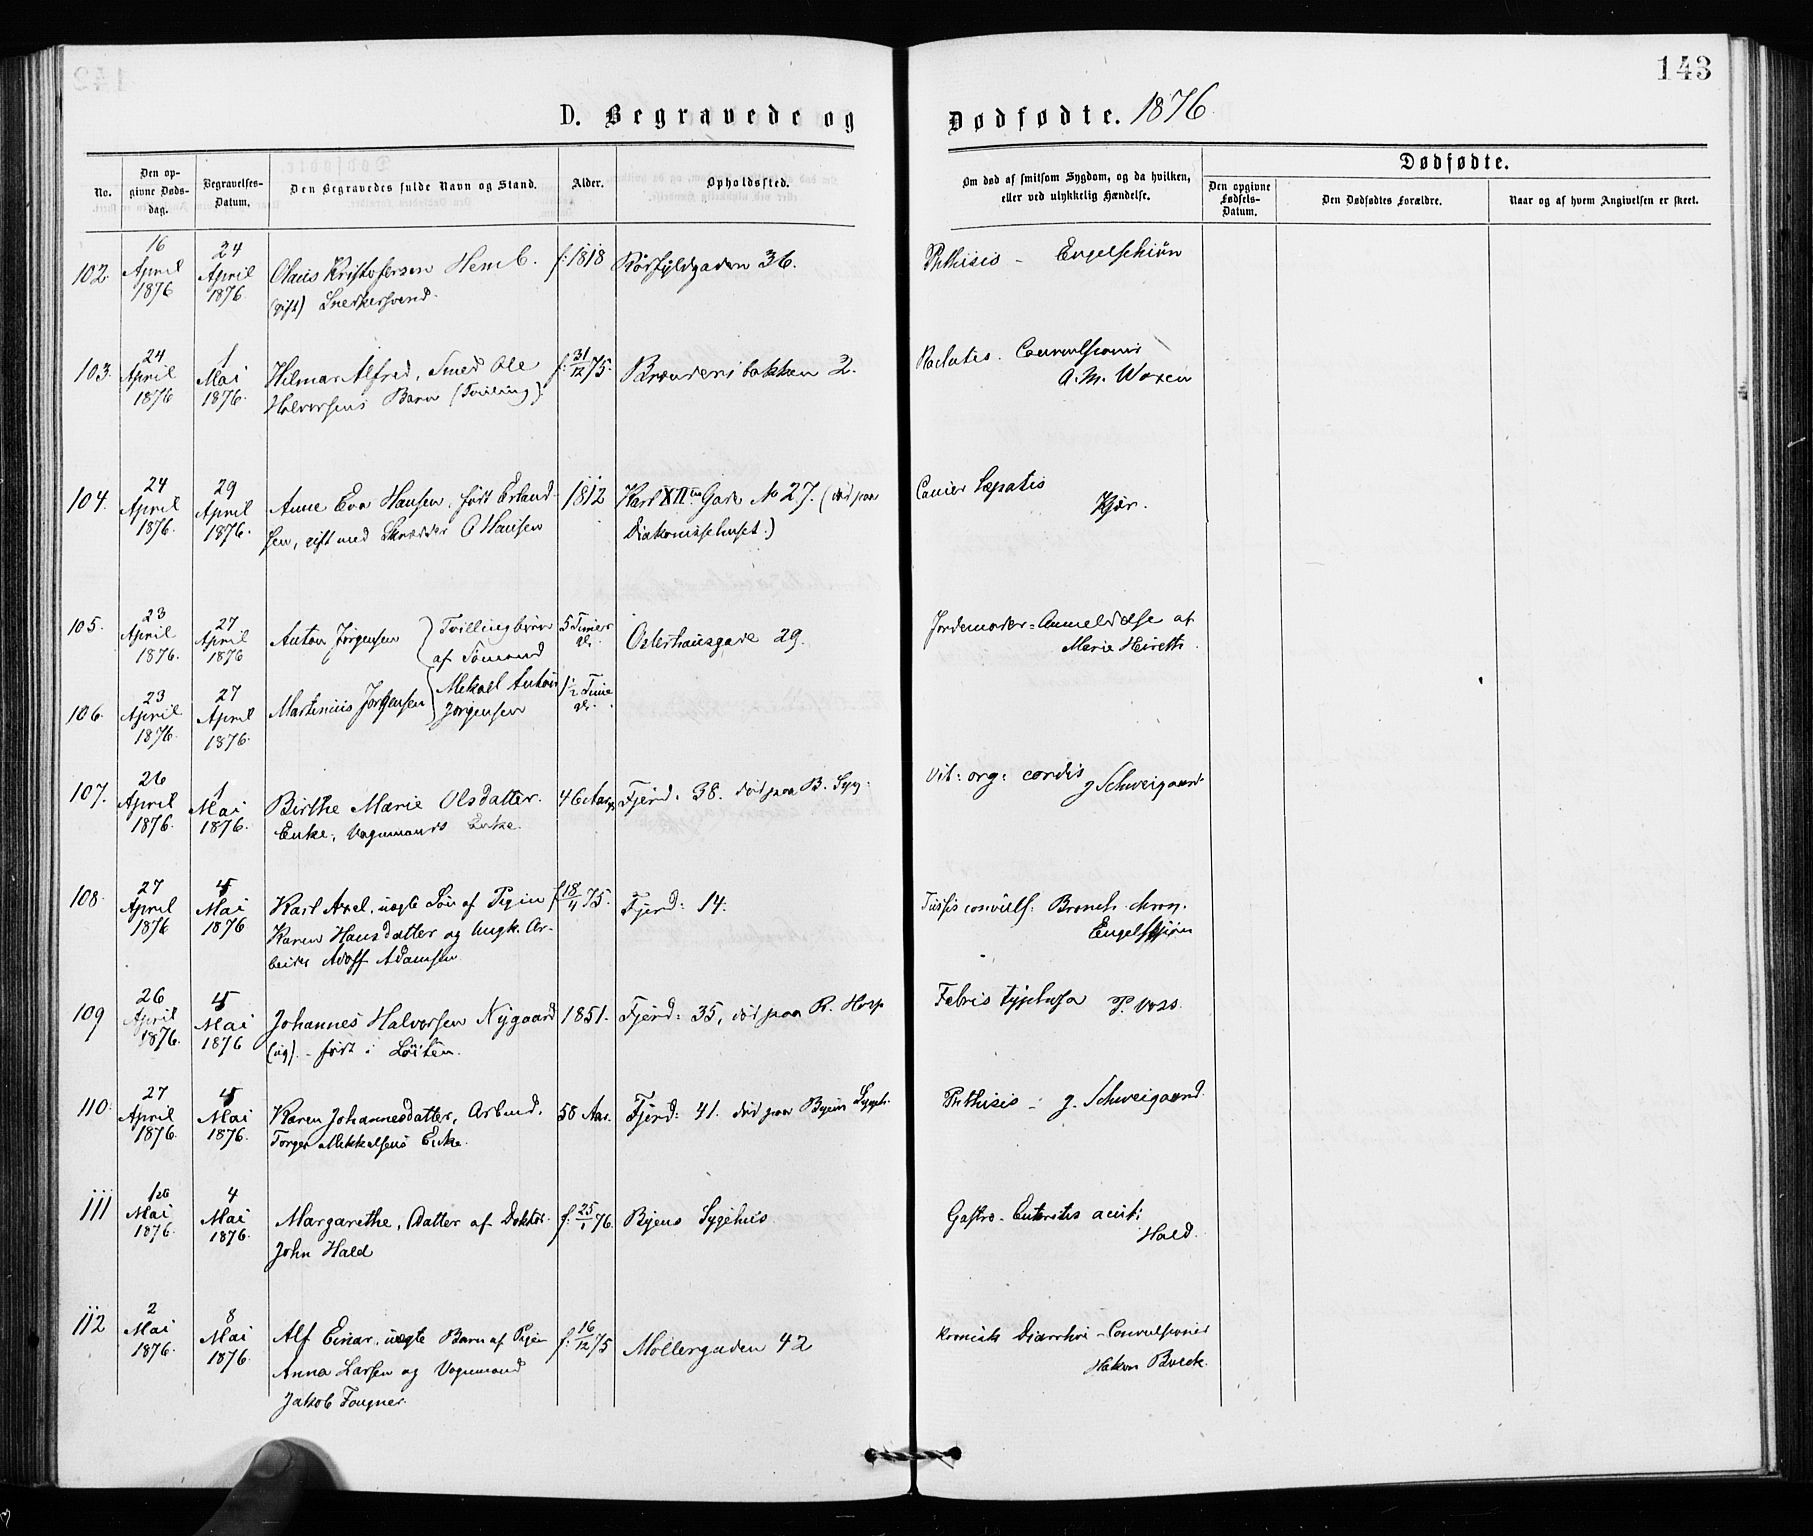 143
D. Begravede og Dødfødte. 1876
No.
Den opgivne Dødsdag.
Begravelses-Datum.
Den Begravedes fulde Navn og Stand.
Alder.
Opholdssted.
Om død af smitsom Sygdom, og da hvilken,
eller ved ulykkelig Hændelse.
Dødfødte.
Den opgivne Fødsels-Datum.
Den Dødfødtes Forældre.
Naar og af hvem Angivelsen er skeet.
102. 16 April 1876 24 April 1876 Olaus Kristofersen Hemb. f: 1818 36. Phthisis - Engelschiøn
(gift) Snedkersvend.
103. 24 April 1876 1 Mai 1876. Hilmar Alfred, Smed Ole f. 31/12 75. Brænderibakken 2. Convulsioner
Halvorsens Barn (Tvilling). A. M. Woxen
104. 24 April 1876. 29 April 1876. Anne Eva Hansen, født Erland- 1812 Karl XII Gade No 27. (død paa Cancer hepatis
sen, gift med Skrædder O Hansen Diakonissehuset.) Kjær.
105. 23 April 1876. 27 April 1876 Anton Jørgensen } Tvillingbørn 5 Timer gl. Osterhausgade 29. Jordemoder-Anmeldelse af
af Sømand Marie
106. 23 April 1876. 27 April 1876. Martinius Jørgensen { Mekael Anton 1½ Time gl.
Jørgensen
107. 26 April 1876. 1 Mai 1876. Birthe Marie Olsdatter. 46 Aar Fjerd. 38. død paa B. Syg: Vit: org: cordis
Enke, Vognmands Enke. g Schweigaard
108. 27 April 1876 5 Mai 1876 Karl Axel, uægte Søn af Pigen f 18/11 75. Fjerd: 14. Tussis convuls: Bronch. chron.
Karen Hansdatter og Ungk. Ar- Engelschiøn
beider Adolf Adamsen
109 26 April 1876. 5 Mai 1876 Johannes Halvorsen Nygaard 1851. Fjerd: 35, død paa R. Hosp Febris typhosa P. Voss.
(ug). - født i Løiten.
110. 27 April 1876 5 Mai 1876. Karen Johannesdatter, Arbmd. 58 Aar. Fjerd: 41. død paa Byens Sygeh. Phthisis - g. Schweigaard.
Torger Mikkelsens Enke.
111 1 Mai 1876. 4 Mai 1876. Margarethe, Datter af Doktor f. 25/1 76. Byens Sygehus. Gastro-Enteritis acut:
John Hald Hald.
112 2 Mai 1876. 8 Mai 1876. Alf Einar, uægte Barn af Pigen f. 16/12 75 Møllergaden 42 kronisk Diarrhoe - Convulsioner
Anna Larsen og Vognmand Hakon Boeck.
Jakob Fougner.